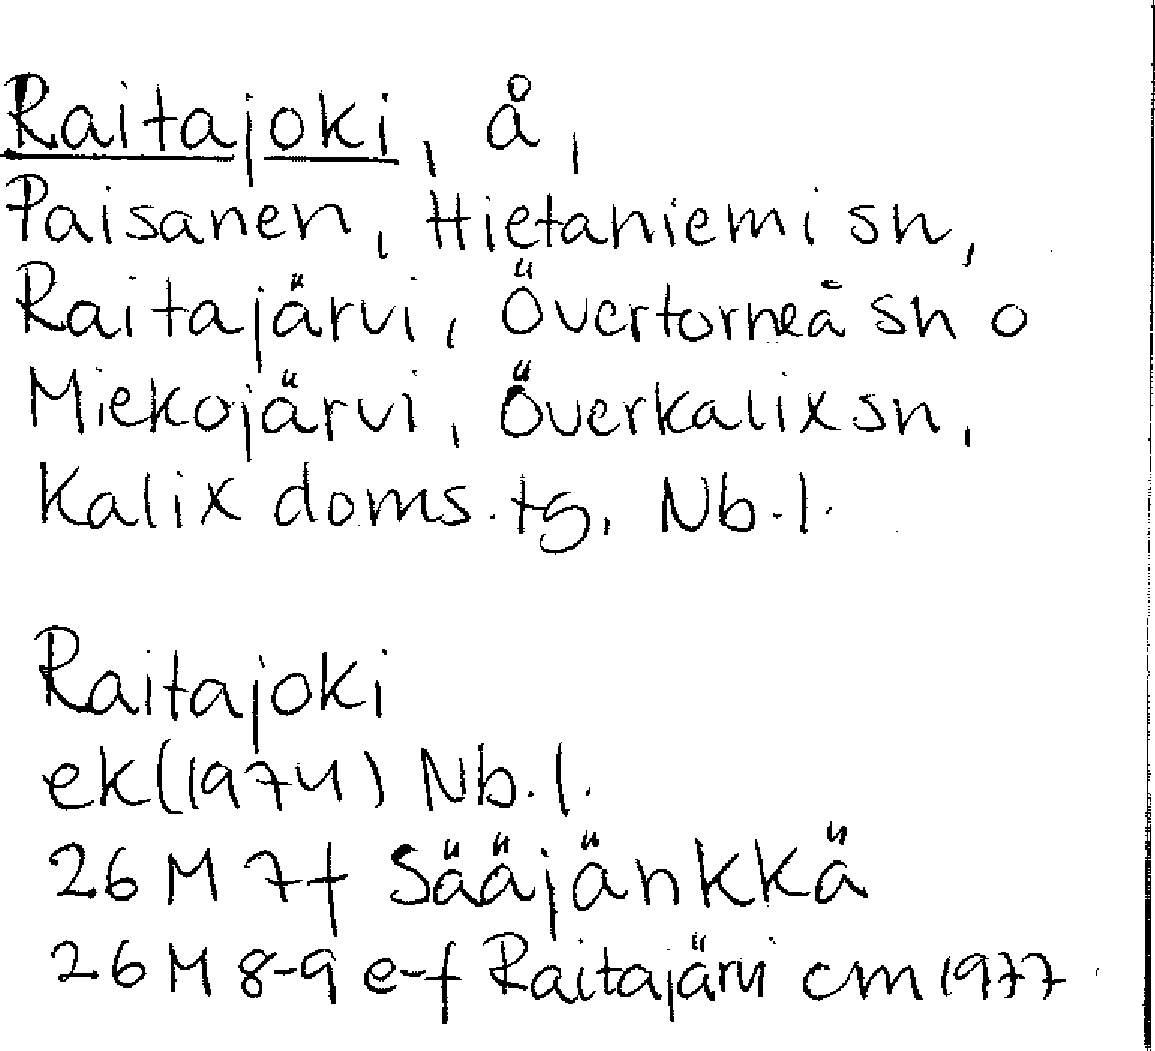 Raitajoki, å,
Paisanen, Hietaniemi sn,
Raitajärvi, Övertorneå sn o
Miekojärvi, Överkalix sn,
Kalix doms.tg, Nb.l.
Raitajoki
ek (1974) Nb.l.
26 M 7f Sääjänkkä
26 M 8-9 e-f Raitajärvi cm 1977